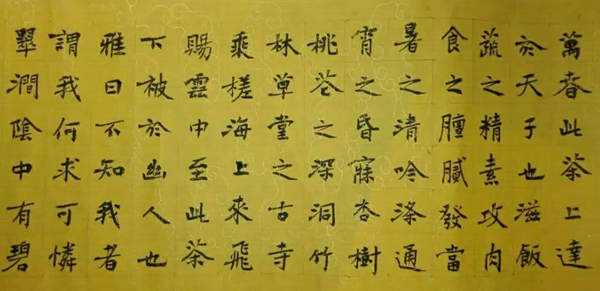 萬春此茶上達
於天子也滋飯
蔬之精素攻肉
食之膻膩發當
暑之清吟滌通
宵之昏寐杏樹
桃花之深洞竹
林草堂之古寺
乘槎海上來飛
賜雲中至此茶
下被於幽人也
雅曰不知我者
謂我何求可憐
翠澗陰中有碧